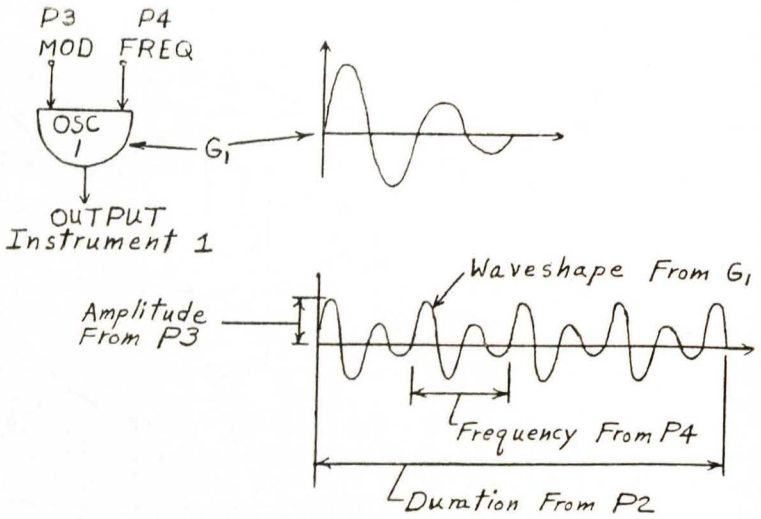 P3 P4
MOD FREQ
OSC
1
G₁
OUTPUT
Instrument 1
Waveshape From G₁
Amplitude
From P3
Frequency From P4
Duration From P2